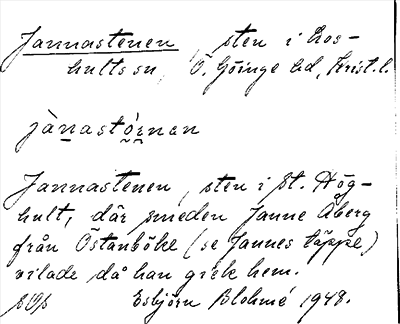 Jannastenen, sten i Los-
hults sn, Ö. Göinge hd, Krist. l.
jànastó̤rnan
Jannastenen, sten i St. Hög-
hult, där smeden Janne Åberg
från Östanböke (se Jannes täppe)
vilade då han gick hem.
Esbjörn Blohmé 1948.